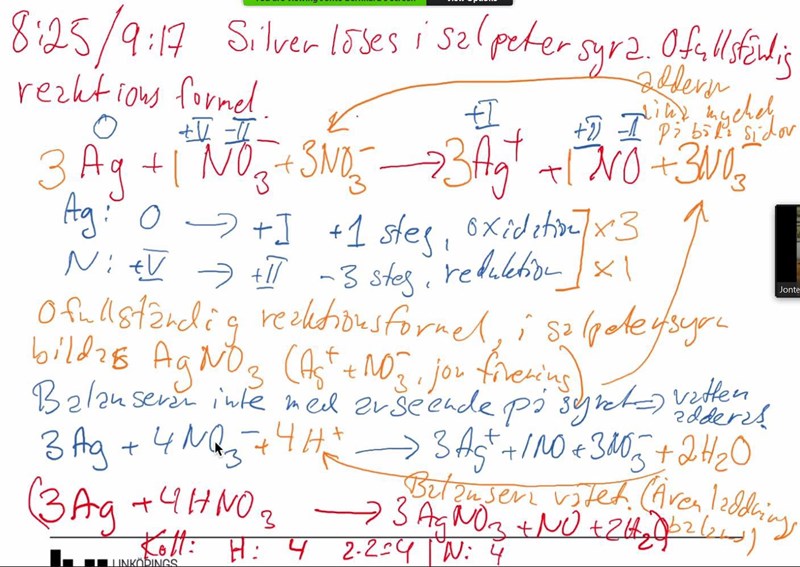 8:25/9:17 Silver löses i salpetersyra. Ofullständig
reaktionsformel.
addera
lika mycket
på båda sidor
0 +V -II +I +II -II
3 Ag + 1 NO₃⁻ + 3NO₃⁻ → 3Ag⁺ + 1 NO + 3NO₃⁻
Ag: 0 → +I +1 steg, oxidation ] ×3
N: +V → +II -3 steg, reduktion ] ×1
Ofullständig reaktionsformel, i salpetersyra
bildas AgNO₃ (Ag⁺ + NO₃⁻, jonförening)
Balanseran inte med avseende på syret => vatten
adderas.
3Ag + 4NO₃⁻ + 4H⁺ → 3Ag⁺ + 1NO + 3NO₃⁻ + 2H₂O
Balansera vätet. (Även laddnings
balans)
(3Ag + 4HNO₃ → 3AgNO₃ + NO + 2H₂O)
Koll: H: 4 2·2=4 | N: 4
LINKÖPINGS
Jonte